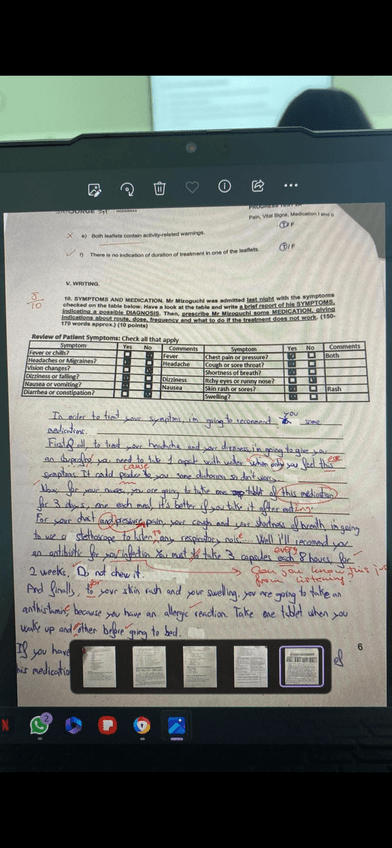 Pain, Vital Signs, Medication I and II
e) Both leaflets contain activity-related warnings.
T/F
f) There is no indication of duration of treatment in one of the leaflets.
T/F
V. WRITING.
5/10
10. SYMPTOMS AND MEDICATION. Mr Mizoguchi was admitted last night with the symptoms
checked on the table below. Have a look at the table and write a brief report of his SYMPTOMS,
indicating a possible DIAGNOSIS. Then, prescribe Mr Mizoguchi some MEDICATION, giving
indications about route, dose, frequency and what to do if the treatment does not work. (150-
170 words approx.) (10 points)
Review of Patient Symptoms: Check all that apply
Symptom Yes No Comments Symptom Yes No Comments
Fever or chills? Fever Chest pain or pressure? Both
Headaches or Migraines? Headache Cough or sore throat?
Vision changes? Shortness of breath?
Dizziness or falling? Dizziness Itchy eyes or runny nose?
Nausea or vomiting? Nausea Skin rash or sores? Rash
Diarrhea or constipation? Swelling?
In order to treat your symptoms, i'm going to recommend you some
medications.
First all, to treat your headache and your dizziness, i'm going to give you
an ibuprofen, you need to take 1 with water when only you feel this
symptoms. It could cause to you some so don't worry.
Now, for your nausea, you are going to take one tablet of this medication
for 3 days, one each meal, it's better if you take it after eating.
For your chest and pressure pain, your cough and your shortness of breath, im going
to use a stethoscope to listen any respiratory noise. Well I'll recommend you
an antibiotic for your infection. You must to take 3 capsules each every 8 hours for
2 weeks, Do not chew it.
Can you know this just
from listening?
And finally, to for your skin rash and your swelling, you are going to take an
antihistamine because you have an allergic reaction. Take one tablet when you
wake up and other before going to bed.
If you have
his medication
6
2